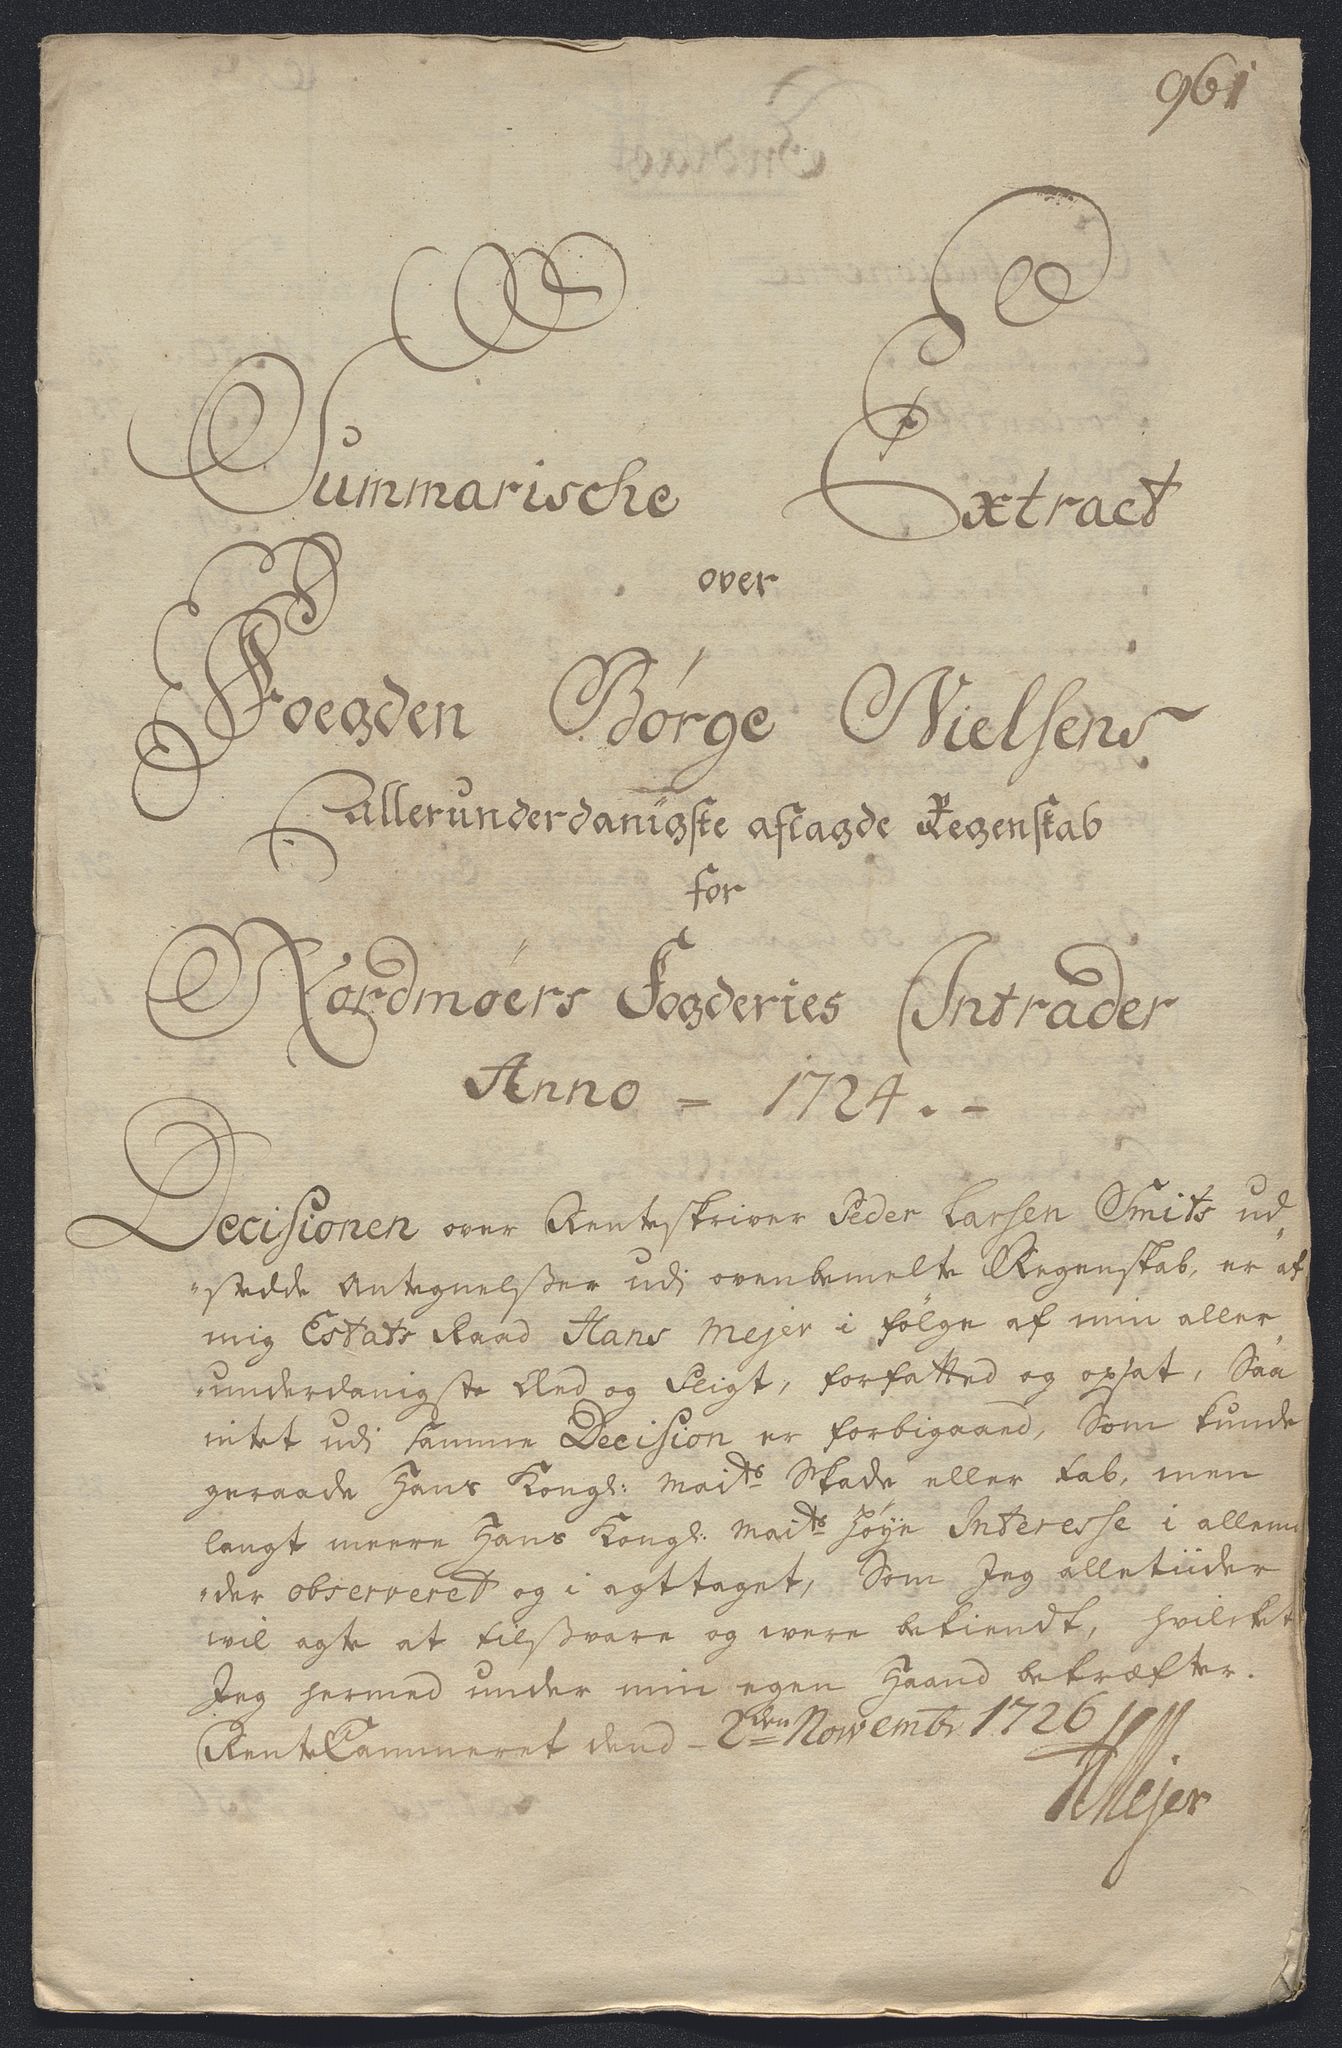 961
Summarische Extract
over
Foegden Børge Nielsens
allerunderdanigste aflagde Regenskab
for
Nordmøers Fogderies Intrader
Anno - 1724. -
Decisionen over Renteskriver Peder Larsen Smits ud
stedde Antegnelsser udi ovenbemelte Regenskab, er af
mig Estats Raad Hans Mejer i følge af min aller
underdanigste Eed og Pligt, forfatted og opsat, Saa
intet udi samme Decision er forbigaaed, Som kunde
geraade Hans Kongl: Maits Skade eller tab, men
langt meere Hans Kongl: Maits Høÿe Interesse i allem
der observeret og i agttaget, Som Jeg alletiider
vil agte at tilssvare og were bekiendt, hvilcket
Jeg hermed under min egen Haand bekræfter.
RenteCammeret dend - 2den Novembr 1726
HMejer